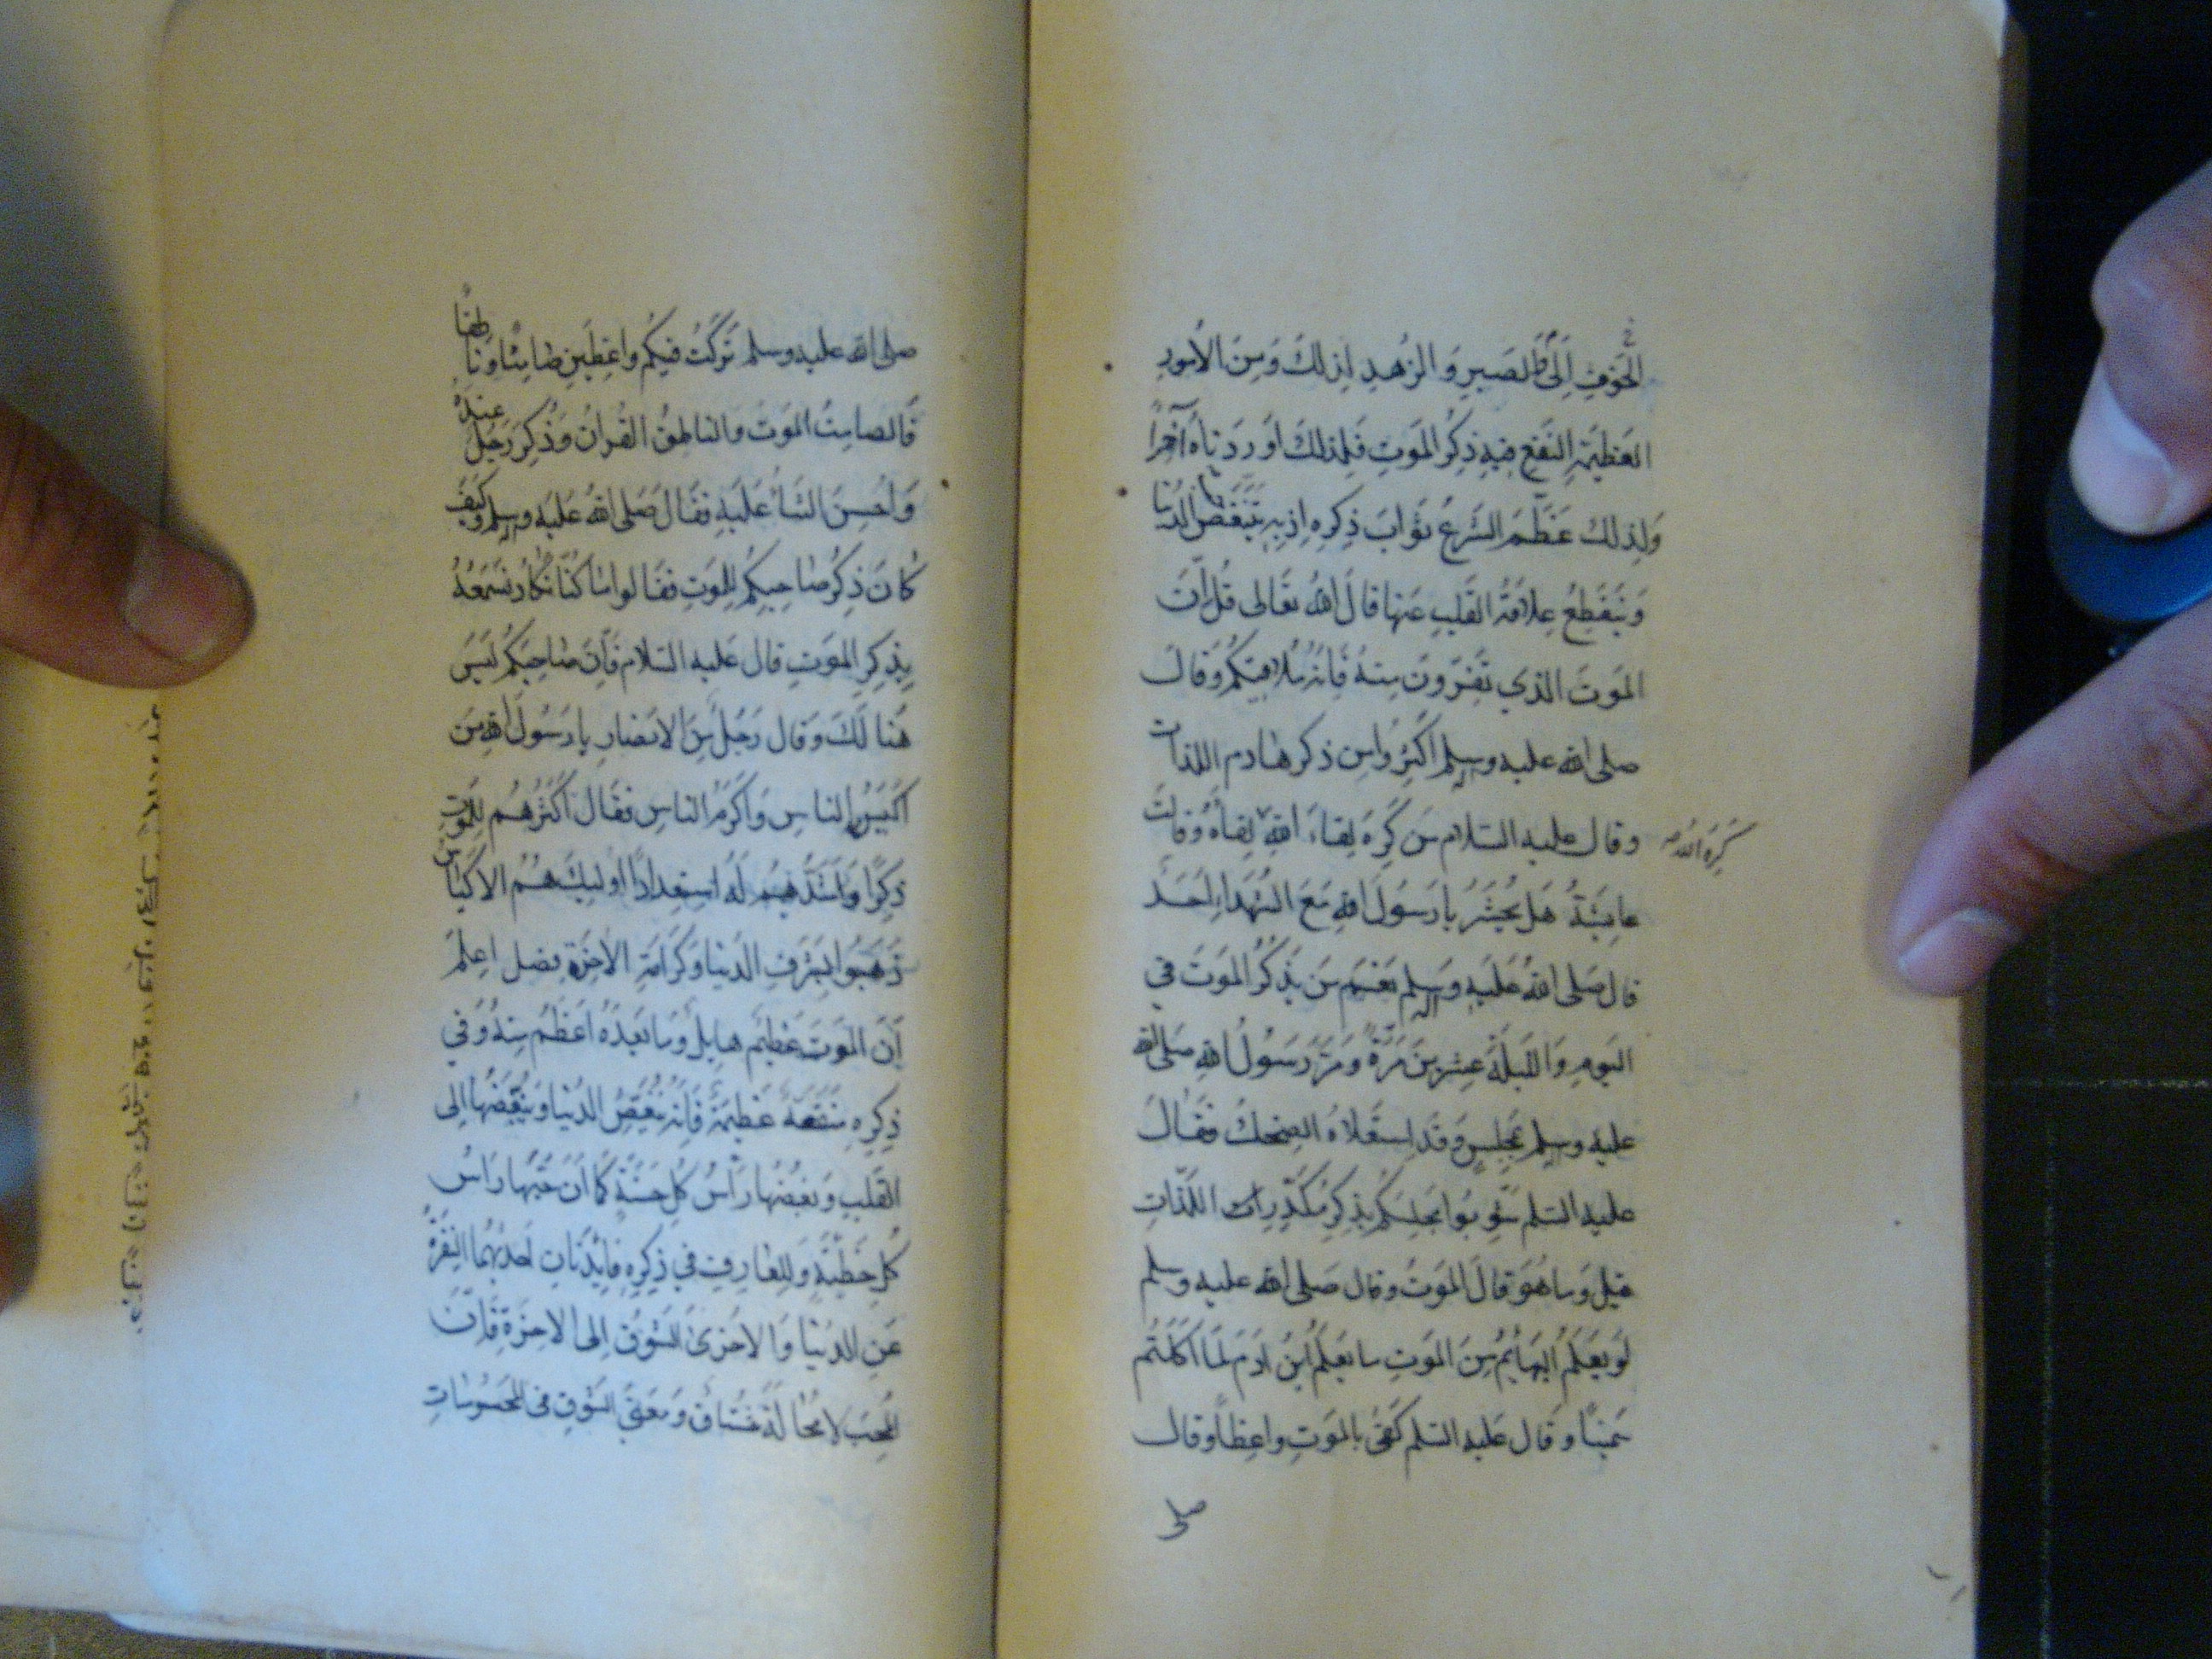 الخَوفِ إلى الصبرِ وَالزُهدِ اِذ لكَ وَمِنَ الأمورِ
العَظيمَةِ النَفعِ فيهِ ذِكرُ الموَتِ فَلِذلكَ اَورَدناهُ آخِراً
وَلِذلك عَظَّمَ الشَرعُ ثوَابَ ذِكرِهِ اِذ بِهِ يَتَنَغَّصُ الدُنيا
وَيَنقَطِعُ عِلاقَةُ القَلبِ عَنها قالَ اللهُ تعَالى قُل اِنَّ
الموَتَ الذي تَفِرّوُنَ مِنهُ فَاِنَهُ مُلاقيكُم وَقالَ
صلى الله عليه وسلم اكثِرُوا مِن ذكر هادم اللذات
وقال عليه السلام مَن كَرِهَ لِقاءَ اللهِ لِقاهُ وَقالَت
كَرِهَ اللهُ
عايشَةُ هَل يُحشَرُ يا رَسُولَ اللهِ مَعَ الشُهَداءِ احَدٌ
قال صَلى اللهُ عَلَيهِ وَسلم نعَم مَن يَذكُرُ الموَتَ في
اليَومِ وَالليلَةِ عِشرينَ مَرَةً وَمَرَّ رَسُولُ اللهِ صَلى الله
عليهِ وسلم بمَجلِسٍ وَقَد اِستَعلاهُ الضِحكُ فقَالَ
عليهِ السّلم شَوِّبوُا مجلِسَكُم بِذِكرِ مُكَدِّرِات اللَذّاتِ
قيلَ وَما هُوَ قالَ الموَتُ وقال صَلى الله عليه وسلم
لَو يَعلَمُ البهايِمُ مِنَ الموَتِ ما يعلَمُ ابنُ ادَمَ لما اكَلتُم
سَميناً وَقال عَليهِ السّلم كَفى بالموَتِ واعِظاً وَقالَ
صلى
صلى الله عليه وسلم تَركتُ فيكُم واعِظَينِ صَامِتاً وَناطِقاً
فَالصامِتُ الموَتُ وَالناطِقُ القُرانُ وَذُكِرَ رَجُلٌ عِندَهُ
وَاُحسِنَ الثنَاُ عَليَهِ فقَالَ صَلى اللهُ عَليَهِ وسلم كَيفَ
كانَ ذِكرُ صَاحِبِكِم للِموَتِ فقَالوا ما كُنّا نكادُ نَسمَعُهُ
بِذِكرِ الموَتِ قالَ عَليهِ السّلام فَاِنَّ صَاحِبَكُم ليَسَ
هُنا لكَ وَقالَ رَجُلٌ مِنَ الانصَارِ يا رَسُولَ اللهِ مَن
اكيَسُ الناسِ وَاكرَمُ الناسِ فقَالَ اكثَرُهُم لِلمَوتِ
ذِكراً وَاشَدُّهُم لَهُ اِستِعداداً اوُليكَ هُمُ الاكياس
ذَهَبوُا بِشَرَفِ الدُنيا وَكَرامَةِ الاخِرَةِ فصل اِعلَم
اَنَّ الموَتَ عَظيمٌ هايِلٌ وَما بَعدَهُ اعَظَمُ مِنهُ وَفي
ذِكرِهِ مَنفَعَةٌ عَظيمَةٌ فَاِنَهُ يُنَغِّصُ الدُنيا وَيُبَغِّضُها الى
القَلبِ وَبُغضُها رَأسُ كُلِ حَسَنَةٍ كما اَنَ حُبَّها رَاسُ
كُلِ خَطيَّةٍ وَلِلعارِفِ في ذِكرِهِ فايِدَتانِ احَديهُما النَفرَةُ
عَنِ الدُنيا وَالاخُرىَ الشَوقُ اِلى الاخِرَةِ فَاِنَّ
المُحِبَ لا مَحالَةَ مُشتاقٌ وَمَعنىَ الشَوقِ في المحَسُوسَاتِ